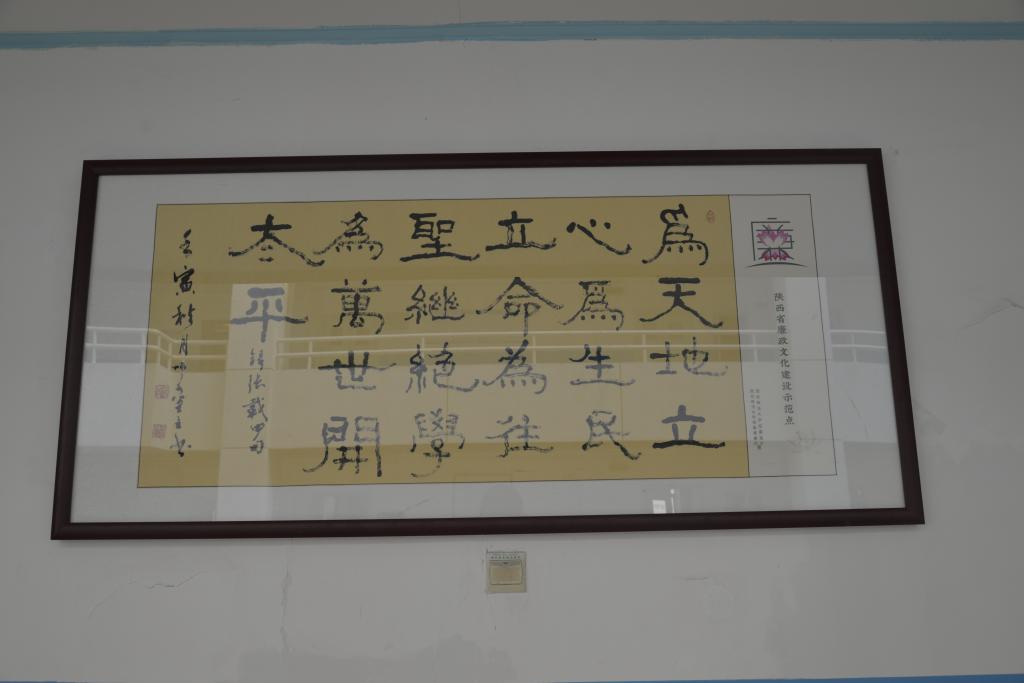 陕西省廉政文化建设示范点
爲天地立
心爲生民
立命為往
聖繼絕學
為萬世開
太平
錄張載四句
壬寅秋月